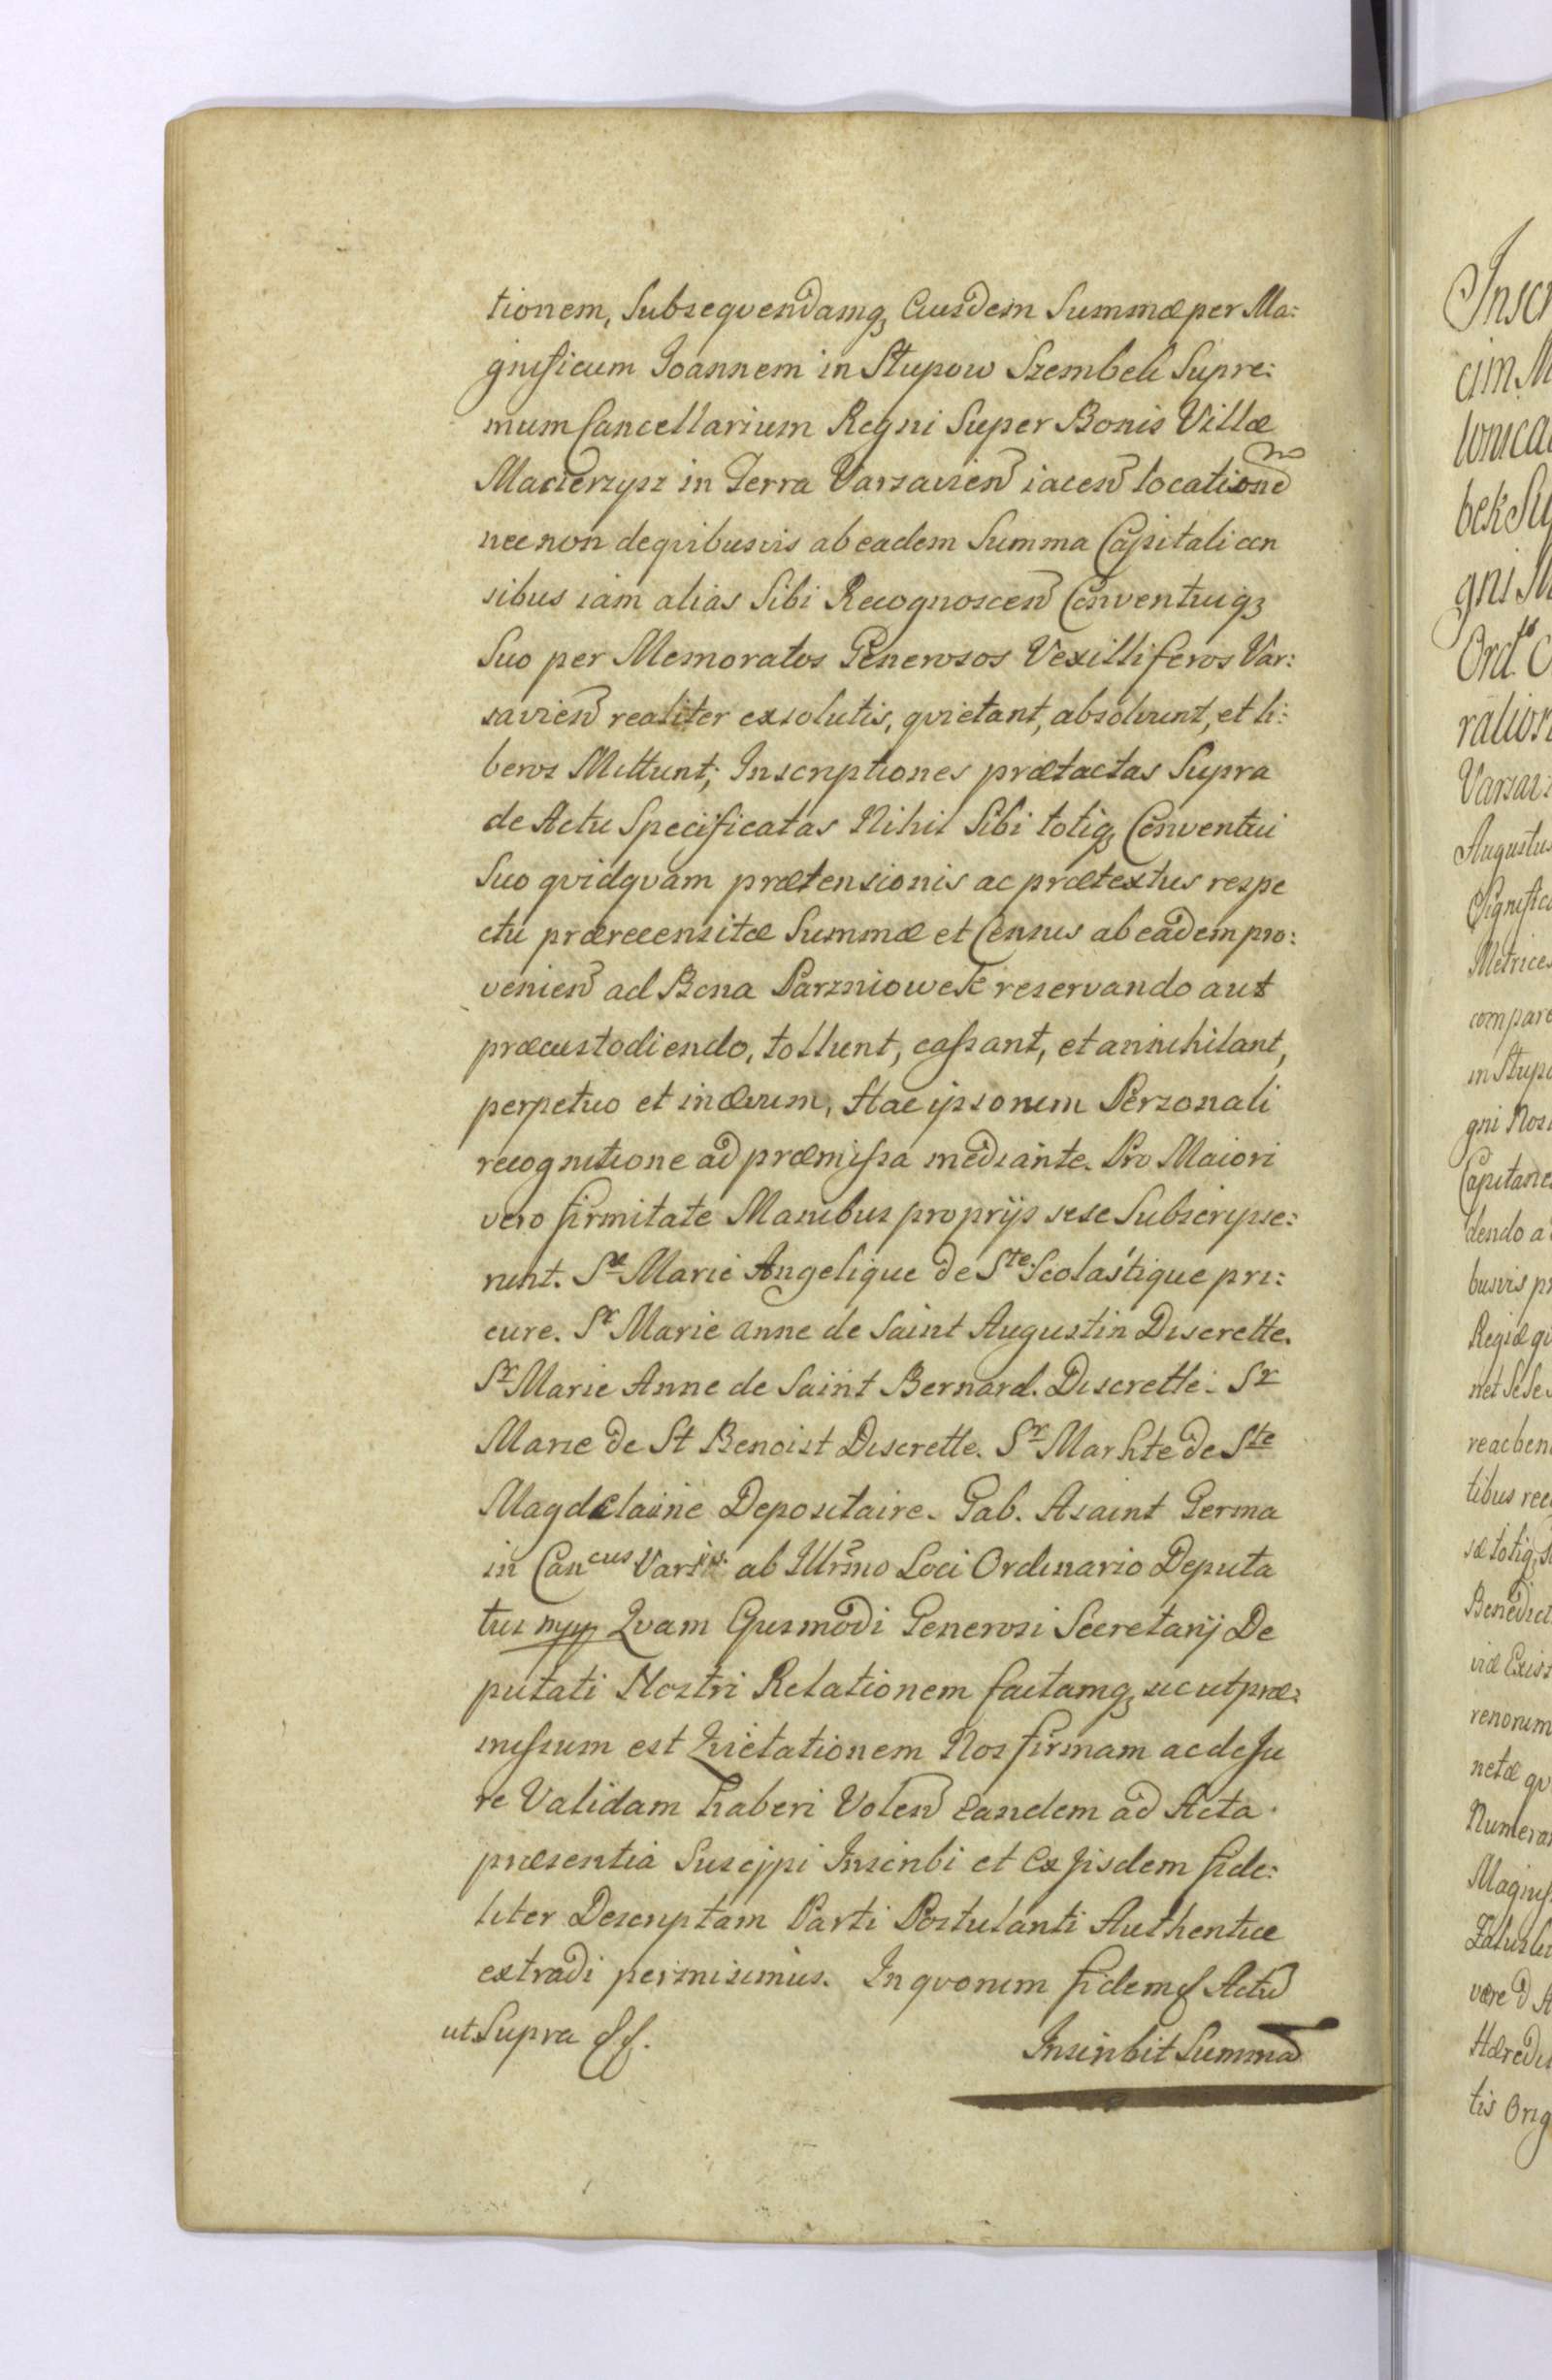 tionem, Subsequendamq̃ Eiusdem Summæ per Ma:
gnificum Joannem in Słupow Szembek Supre:
mum Cancellarium Regni Super Bonis Villæ
Macierzysz in Terra Varsavien̄ iacen̄ locatione
nec non de quibusvis ab eadem Summa Capitali cen
sibus iam alias Sibi Recognoscen̄ Conventuiq̃
Suo per Memoratos Generosos Vexilliferos Var:
savien̄ realiter exsolutis, quietant, absolvunt, et li:
beros Mittunt; Inscriptiones prætactas Supra
de Actu Specificatas Nihil Sibi totiq̃ Conventui
Suo quidquam prætensionis ac prætextus respe
ctu præreceensitæ Summæ et Census ab eadem pro:
venien̄ ad Bona Parzniowskie reservando aut
præcustodiendo, tollunt, cassant, et annihilant,
perpetuo et in ævum, Hac ipsorum Personali
recognitione ad præmissa mediante. Pro Maiori
vero firmitate Manibus proprijs sese Subscripse:
runt. Sr Marie Angelique de Ste Scolastique pri:
eure. Sr Marie anne de Saint Augustin Discrette.
Sr Marie Anne de Saint Bernard. Discrette. Sr
Marie de St Benoist Discrette. Sr Marhte de Ste
Magdelaine Depositaire. Gab. A saint Germa
in Cancus Varsis. ab Illr̃mo Loci Ordinario Deputa
tus mpp Quam Eiusmodi Generosi Secretarij De
putati Nostri Relationem factamq̃ uc ut præ:
missum est Quietationem Nos firmam ac de Ju
re Validam haberi Volen̄ Eandem ad Acta
præsentia Suscipi Inscribi et Ex Jisdem fide:
liter Descriptam Parti Postulanti Authentice
extradi permisimus. In quorum fidem & Actū
ut Supra &&.
Inscribit Summā
Inscr
cim M
lonica
bek Su
gni M
Ord.s C
ration
Varsav
Augustus
Significa
Metrices
compare
in Słupo
gni Nos
Capitane
dendo a
busvis pr
Regiæ qu
net Sese
reac ben
tibus rec
sæ totiq̃ S
Benedict
viæ Exist
renorum
netæ qu
Numera
Magnif
Załuski
være D A
Hæredit
tis Orig